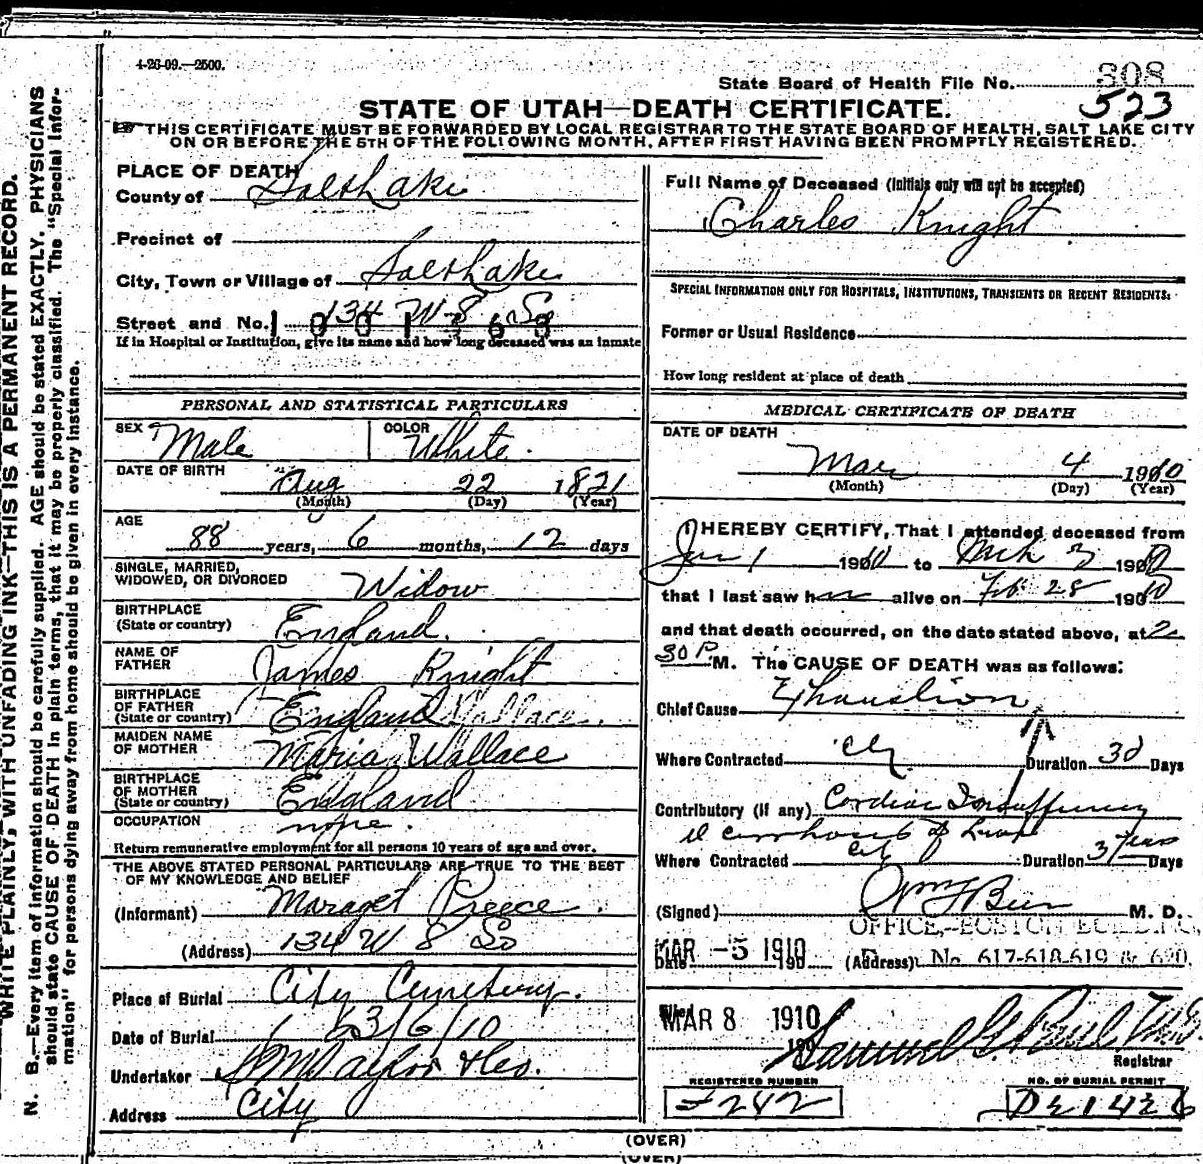 4-26-09.—2500.
State Board of Health File No. 808
523
STATE OF UTAH—DEATH CERTIFICATE.
THIS CERTIFICATE MUST BE FORWARDED BY LOCAL REGISTRAR TO THE STATE BOARD OF HEALTH, SALT LAKE CITY
ON OR BEFORE THE 5TH OF THE FOLLOWING MONTH, AFTER FIRST HAVING BEEN PROMPTLY REGISTERED.
WRITE PLAINLY, WITH UNFADING INK—THIS IS A PERMANENT RECORD.
N. B.—Every item of information should be carefully supplied. AGE should be stated EXACTLY. PHYSICIANS
should state CAUSE OF DEATH in plain terms, that it may be properly classified. The "Special Infor-
mation" for persons dying away from home should be given in every instance.
PLACE OF DEATH
County of Salt Lake
Precinct of
City, Town or Village of Salt Lake
Street and No. 134 W 8 So
If in Hospital or Institution, give its name and how long deceased was an inmate
PERSONAL AND STATISTICAL PARTICULARS
SEX Male COLOR White.
DATE OF BIRTH Aug 22 1821
(Month) (Day) (Year)
AGE
88 years, 6 months, 12 days
SINGLE, MARRIED,
WIDOWED, OR DIVORCED Widow
BIRTHPLACE
(State or country) England.
NAME OF
FATHER James Knight
BIRTHPLACE
OF FATHER
(State or country) England
MAIDEN NAME
OF MOTHER Maria Wallace
BIRTHPLACE
OF MOTHER
(State or country) England
OCCUPATION none.
Return remunerative employment for all persons 10 years of age and over.
THE ABOVE STATED PERSONAL PARTICULARS ARE TRUE TO THE BEST
OF MY KNOWLEDGE AND BELIEF
(Informant) Maraget Preece.
(Address) 134 W 8 So
Place of Burial City Cemetery.
Date of Burial 3/6/10
Undertaker
Address City
Full Name of Deceased (Initials only will not be accepted)
Charles Knight
SPECIAL INFORMATION ONLY FOR HOSPITALS, INSTITUTIONS, TRANSIENTS OR RECENT RESIDENTS:
Former or Usual Residence
How long resident at place of death
MEDICAL CERTIFICATE OF DEATH
DATE OF DEATH
Mar 4 1910
(Month) (Day) (Year)
I HEREBY CERTIFY, That I attended deceased from
Jan 1 1910 to Mch 3 1910
that I last saw h alive on Feb 28 1910
and that death occurred, on the date stated above, at 2
30 P. M. The CAUSE OF DEATH was as follows:
Chief Cause Exhaustion
Where Contracted City Duration 30 Days
Contributory (if any) Cardiac Insufficiency
Where Contracted City Duration 3 Years Days
(Signed) M. D.
OFFICE, BOSTON BUILDING,
MAR -5 1910
Date 190 (Address) No. 617-618-619 & 620.
MAR 8 1910
Registrar
REGISTERED NUMBER
242
NO. OF BURIAL PERMIT
(OVER)
(OVER)